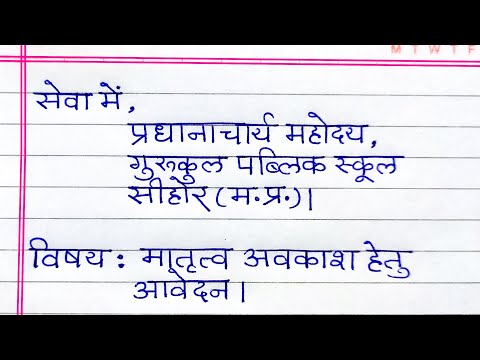 M T W T F
सेवा में,
प्रधानाचार्य महोदय,
गुरुकुल पब्लिक स्कूल
सीहोर (म.प्र.)।
विषय : मातृत्व अवकाश हेतु
आवेदन।